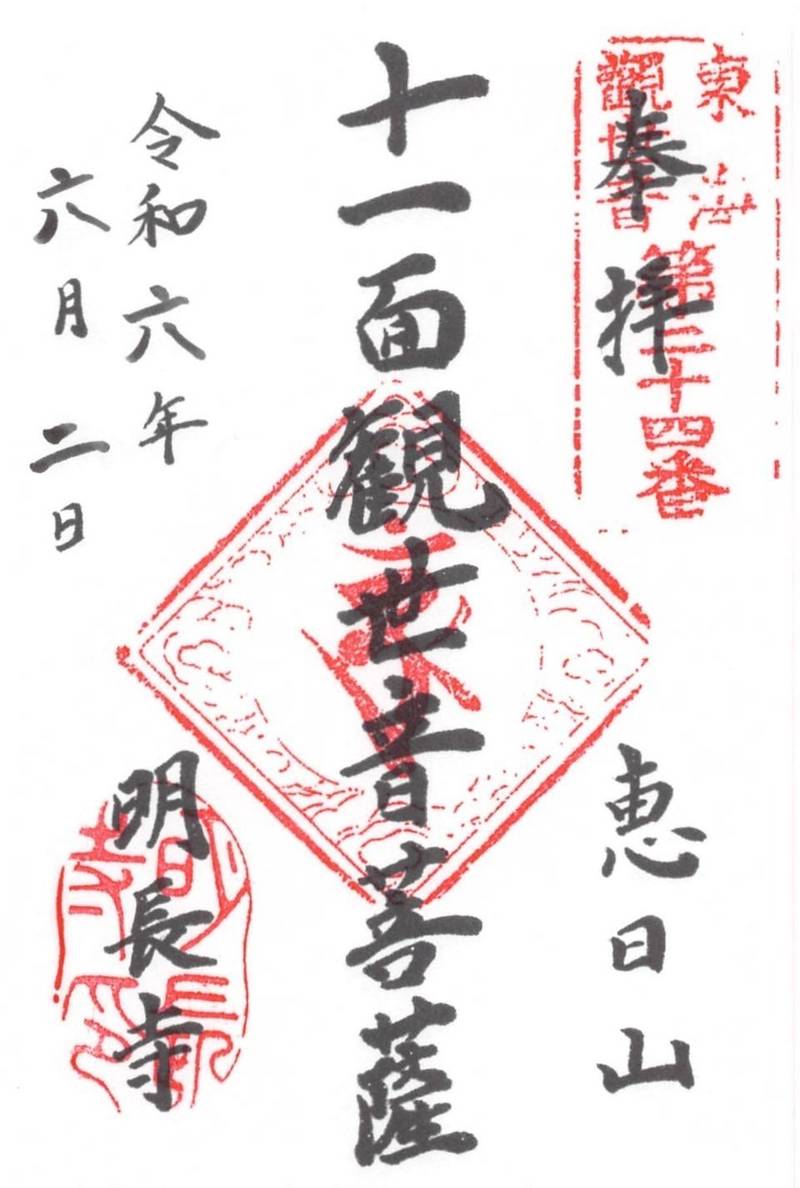 東海
観世音
第二十四番
奉拝
恵日山
十一面観世音菩薩
令和六年
六月二日
明長寺